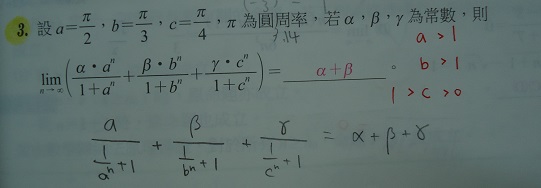 3. 設 a=π/2,b=π/3,c=π/4,π 為圓周率,若 α,β,γ 為常數,則
3.14
a > 1
lim n→∞ (α·aⁿ/1+aⁿ + β·bⁿ/1+bⁿ + γ·cⁿ/1+cⁿ) = α+β 。
b > 1
1 > c > 0
a/(1/aⁿ+1) + β/(1/bⁿ+1) + γ/(1/cⁿ+1) = α+β+γ